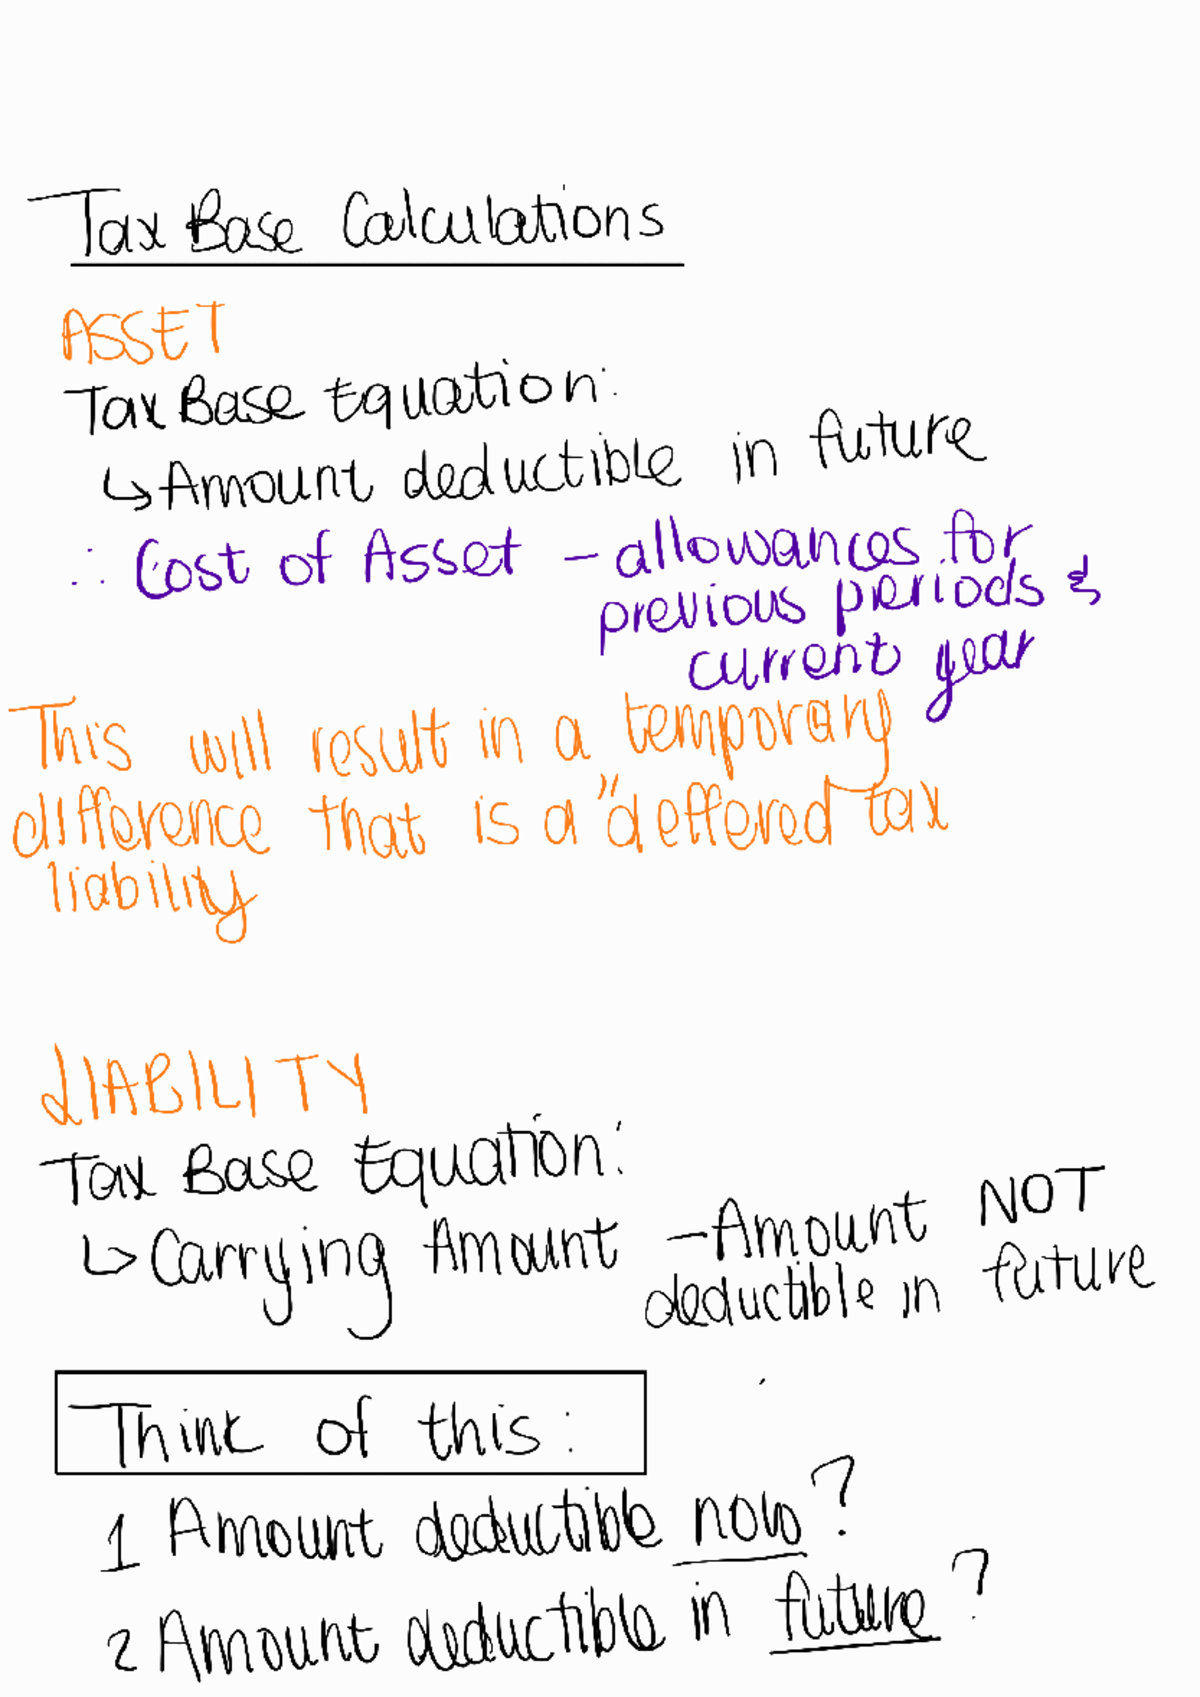 Tax Base Calculations
ASSET
Tax Base Equation:
↳ Amount deductible in future
∴ Cost of Asset – allowances for
previous periods &
current year
This will result in a temporary
difference that is a "deffered tax
liability
LIABILITY
Tax Base Equation:
↳ Carrying Amount – Amount NOT
deductible in future
Think of this:
1 Amount deductible now?
2 Amount deductible in future?